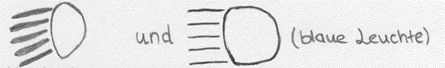 und (blaue Leuchte)